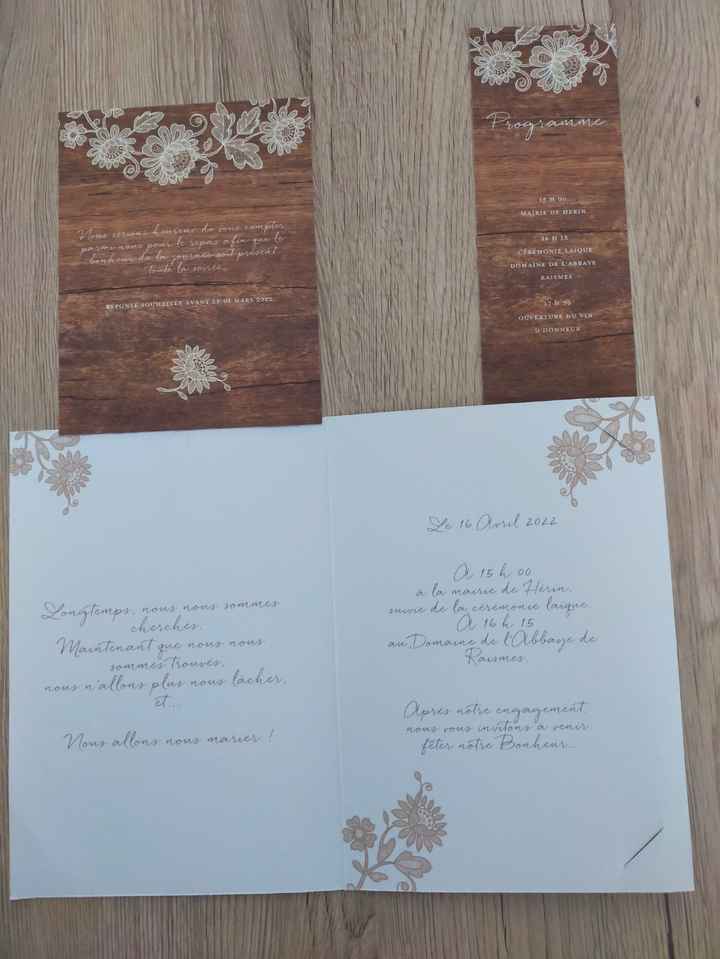 Nous serions heureux de vous compter
parmi nous pour le repas afin que le
bonheur de la journée soit présent
toute la soirée.
RÉPONSE SOUHAITÉE AVANT LE 01 MARS 2022
Programme
15 H 00
MAIRIE DE HERIN
16 H 15
CÉRÉMONIE LAIQUE
DOMAINE DE L'ABBAYE
RAISMES
17 H
OUVERTURE DU VIN
D'HONNEUR
Longtemps, nous nous sommes
cherchés,
Maintenant que nous nous
sommes trouvés,
nous n'allons plus nous lâcher,
et...
Nous allons nous marier !
Le 16 Avril 2022
À 15 h 00
à la mairie de Hérin,
suivie de la cérémonie laïque
À 16 h 15
au Domaine de l'Abbaye de
Raismes.
Après notre engagement
nous vous invitons à venir
fêter notre Bonheur...